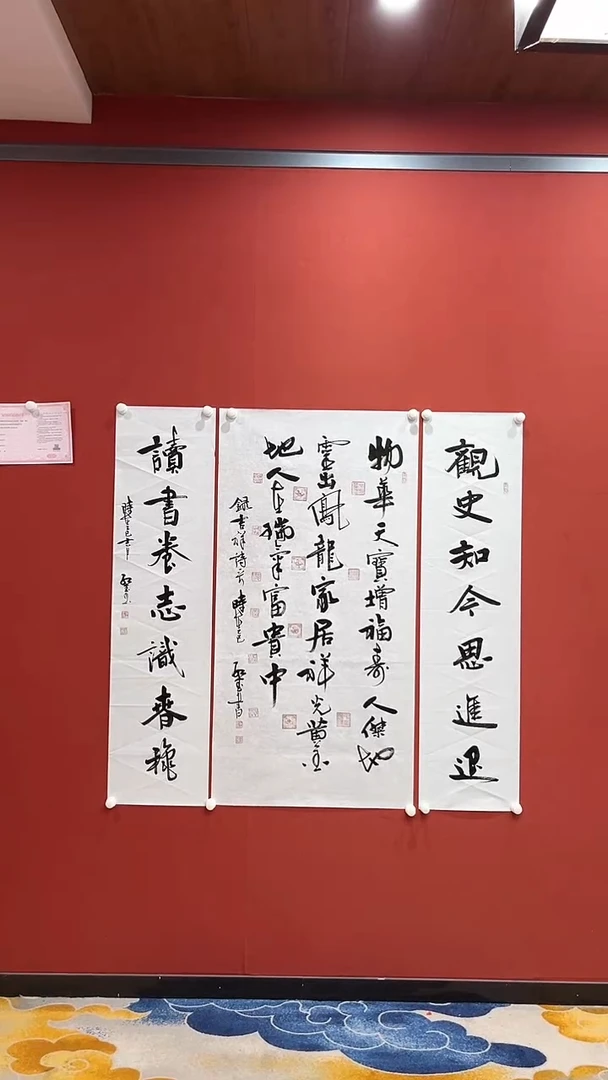 觀史知今思進退
物華天寶增福壽人傑地
靈出鳳龍家居祥光黃金
地人在瑞氣富貴中
録吉祥詩
讀書養志識春穐